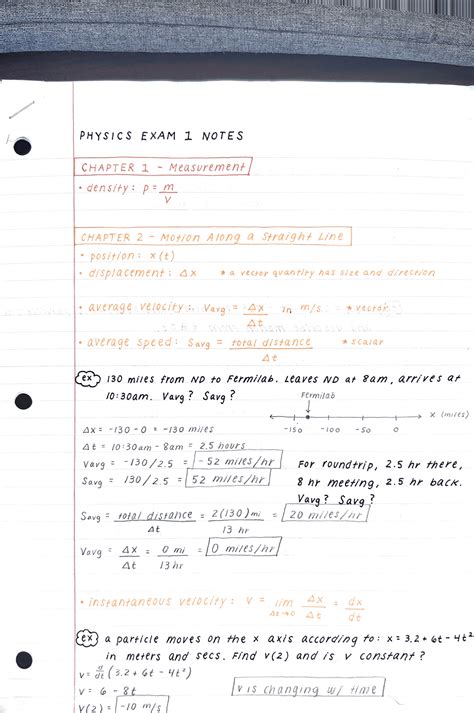 PHYSICS EXAM 1 NOTES
CHAPTER 1 - Measurement
• density: p = m/V
CHAPTER 2 - Motion Along a Straight Line
• position: x(t)
• displacement: Δx * a vector quantity has size and direction
• average velocity: Vavg = Δx/Δt in m/s * vector
• average speed: Savg = total distance/Δt * scalar
ex 130 miles from ND to Fermilab. Leaves ND at 8am, arrives at
10:30am. Vavg? Savg?
Fermilab
x (miles)
-150 -100 -50 0
Δx = -130 - 0 = -130 miles
Δt = 10:30am - 8am = 2.5 hours
Vavg = -130/2.5 = -52 miles/hr
Savg = 130/2.5 = 52 miles/hr
For roundtrip, 2.5 hr there,
8 hr meeting, 2.5 hr back.
Vavg? Savg?
Savg = total distance/Δt = 2(130) mi/13 hr = 20 miles/hr
Vavg = Δx/Δt = 0 mi/13 hr = 0 miles/hr
• instantaneous velocity: v = lim Δt→0 Δx/Δt = dx/dt
ex a particle moves on the x axis according to: x = 3.2 + 6t - 4t²
in meters and secs. Find v(2) and is v constant?
v = d/dt (3.2 + 6t - 4t²)
v = 6 - 8t
v is changing w/ time
v(2) = -10 m/s